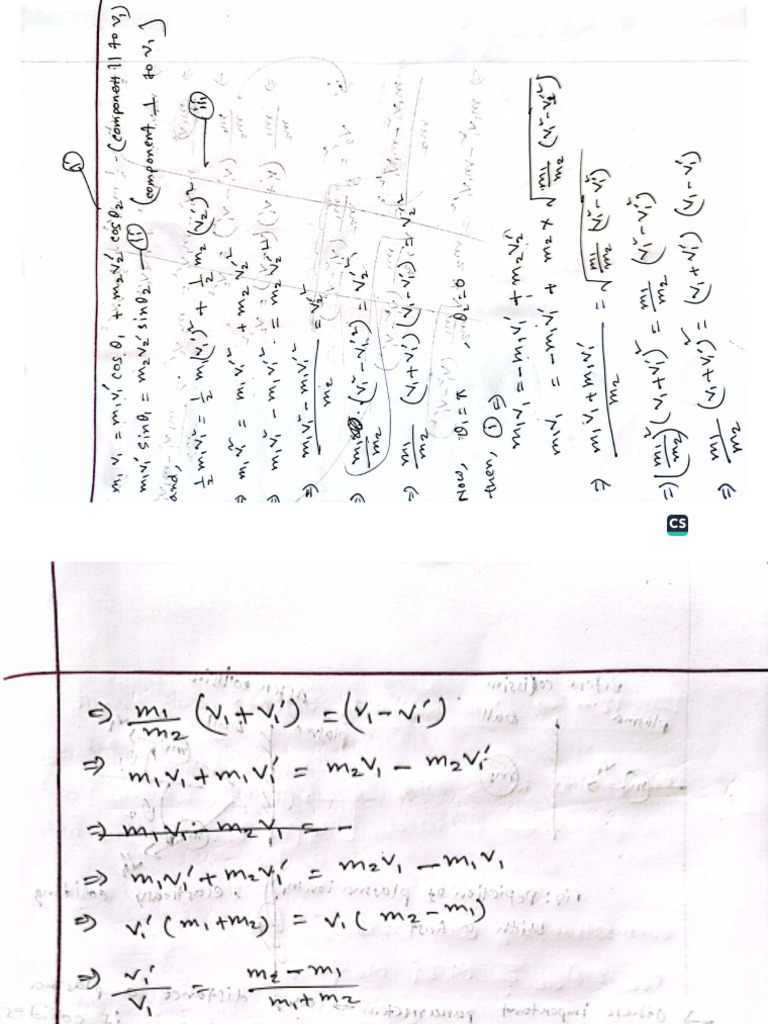 m₁v₁ = m₁v₁' cosθ₁ + m₂v₂' cosθ₂ — (component || to v₁)
(i)
m₁v₁' sinθ₁ = m₂v₂' sinθ₂ — (ii) (component ⊥ to v₁)
and,
½ m₁v₁² = ½ m₁(v₁')² + ½ m₂(v₂')² — (iii)
⇒ m₁v₁² = m₁v₁'² + m₂v₂'²
⇒ m₁v₁² - m₁v₁'² = m₂v₂'²
⇒ (m₁v₁² - m₁v₁'²)/m₂ = v₂'²
⇒ m₁/m₂ (v₁² - v₁'²) = v₂'²
⇒ m₁/m₂ (v₁+v₁')(v₁-v₁') = v₂'²
Now, θ₁ = π, θ₂ = 0
then, (1) ⇒
m₁v₁ = -m₁v₁' + m₂v₂'
m₁v₁ = -m₁v₁' + m₂ × √(m₁/m₂ (v₁² - v₁'²))
⇒ (m₁v₁ + m₁v₁')/m₂ = √(m₁/m₂ (v₁² - v₁'²))
⇒ (m₁/m₂)² (v₁+v₁')² = m₁/m₂ (v₁² - v₁'²)
⇒ m₁/m₂ (v₁+v₁')² = (v₁+v₁') (v₁-v₁')
CS
⇒ m₁/m₂ (v₁ + v₁') = (v₁ - v₁')
⇒ m₁v₁ + m₁v₁' = m₂v₁ - m₂v₁'
⇒ m₁v₁ - m₂v₁ = -
⇒ m₁v₁' + m₂v₁' = m₂v₁ - m₁v₁
⇒ v₁' (m₁+m₂) = v₁ (m₂-m₁)
⇒ v₁'/v₁ = (m₂-m₁)/(m₁+m₂)